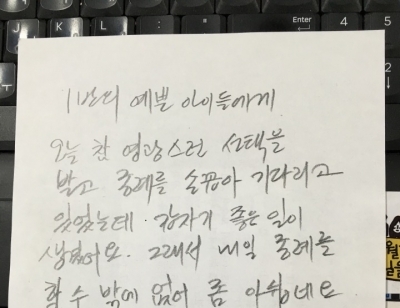 Enter
4
5
J
K
L
1
1반의 예쁜 아이들에게
오늘 참 영광스런 선택을
받고 종례를 손꼽아 기다리고
있었는데. 갑자기 좋은 일이
생겼어요. 그래서 내일 종례를
할 수 밖에 없어 좀 아쉽네요